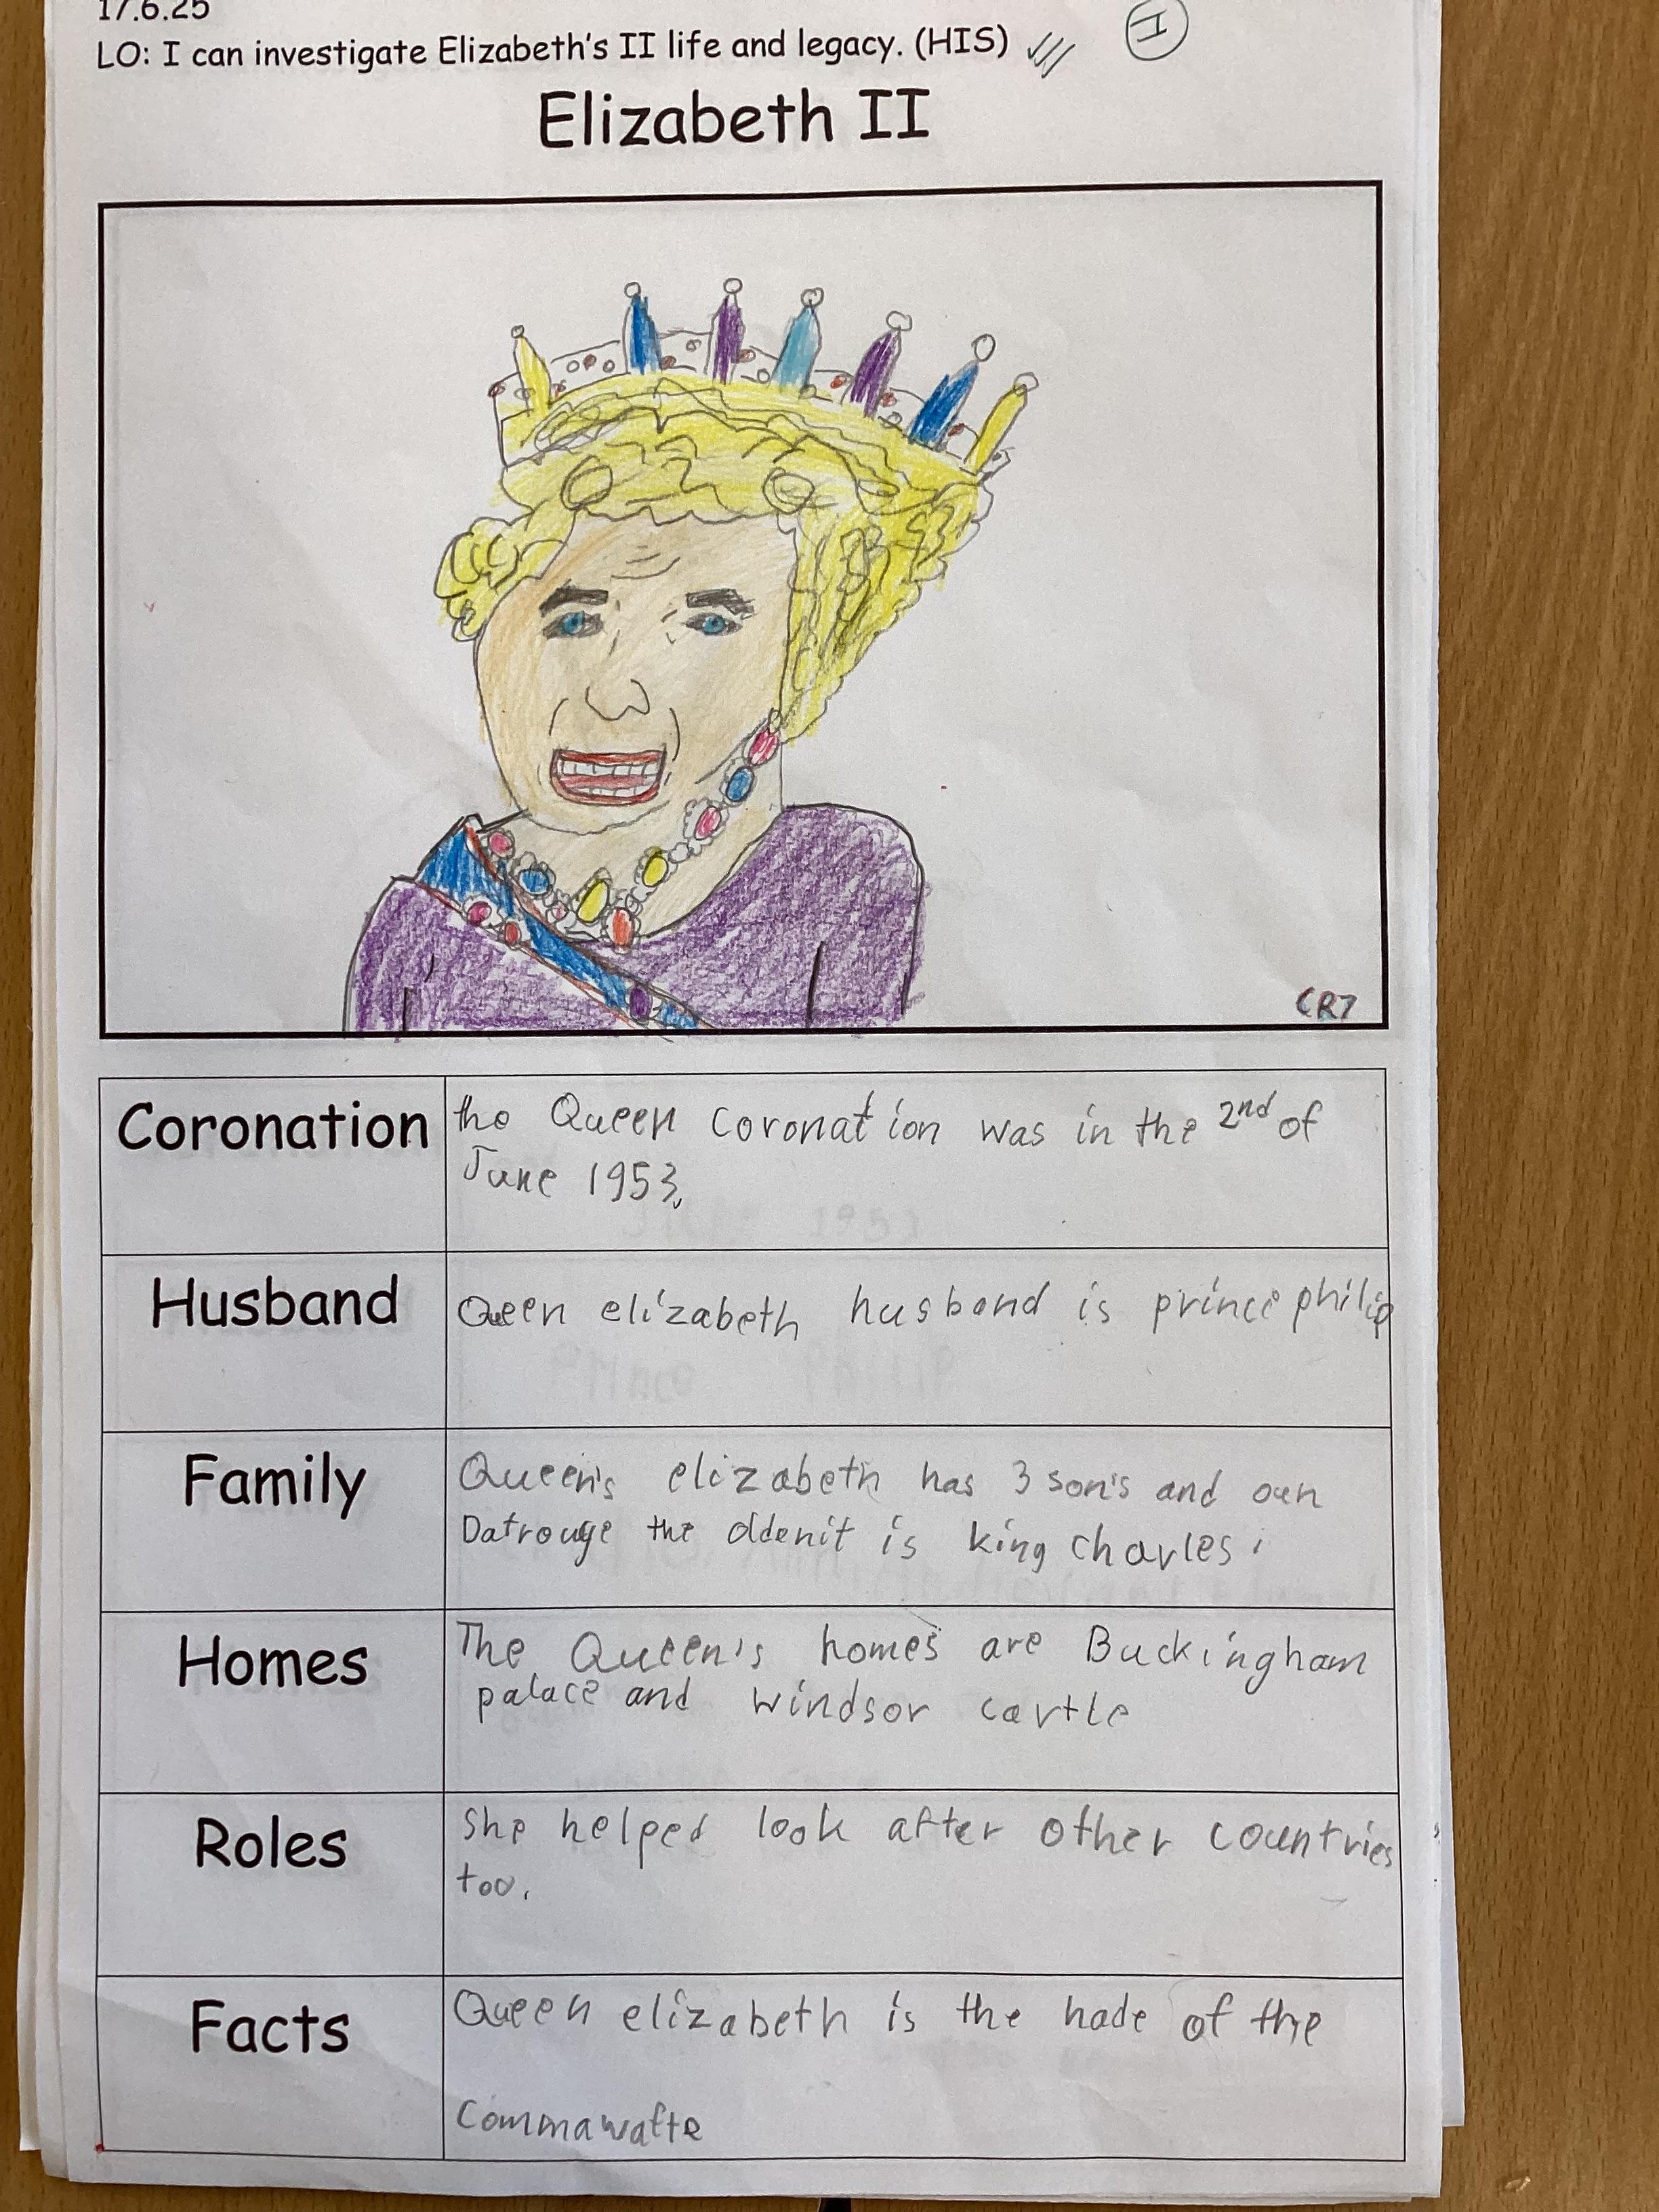 17.6.25
LO: I can investigate Elizabeth's II life and legacy. (HIS)
I
Elizabeth II
CR7
Coronation
the Queen coronation was in the 2nd of
June 1953.
Husband
Queen elizabeth husband is prince philip
Family
Queen's elizabeth has 3 son's and oun
Datrouge the oldenit is king charles.
Homes
The Queen's homes are Buckingham
palace and windsor cartle
Roles
She helped look after other countries
too.
Facts
Queen elizabeth is the hade of the
Commawafte